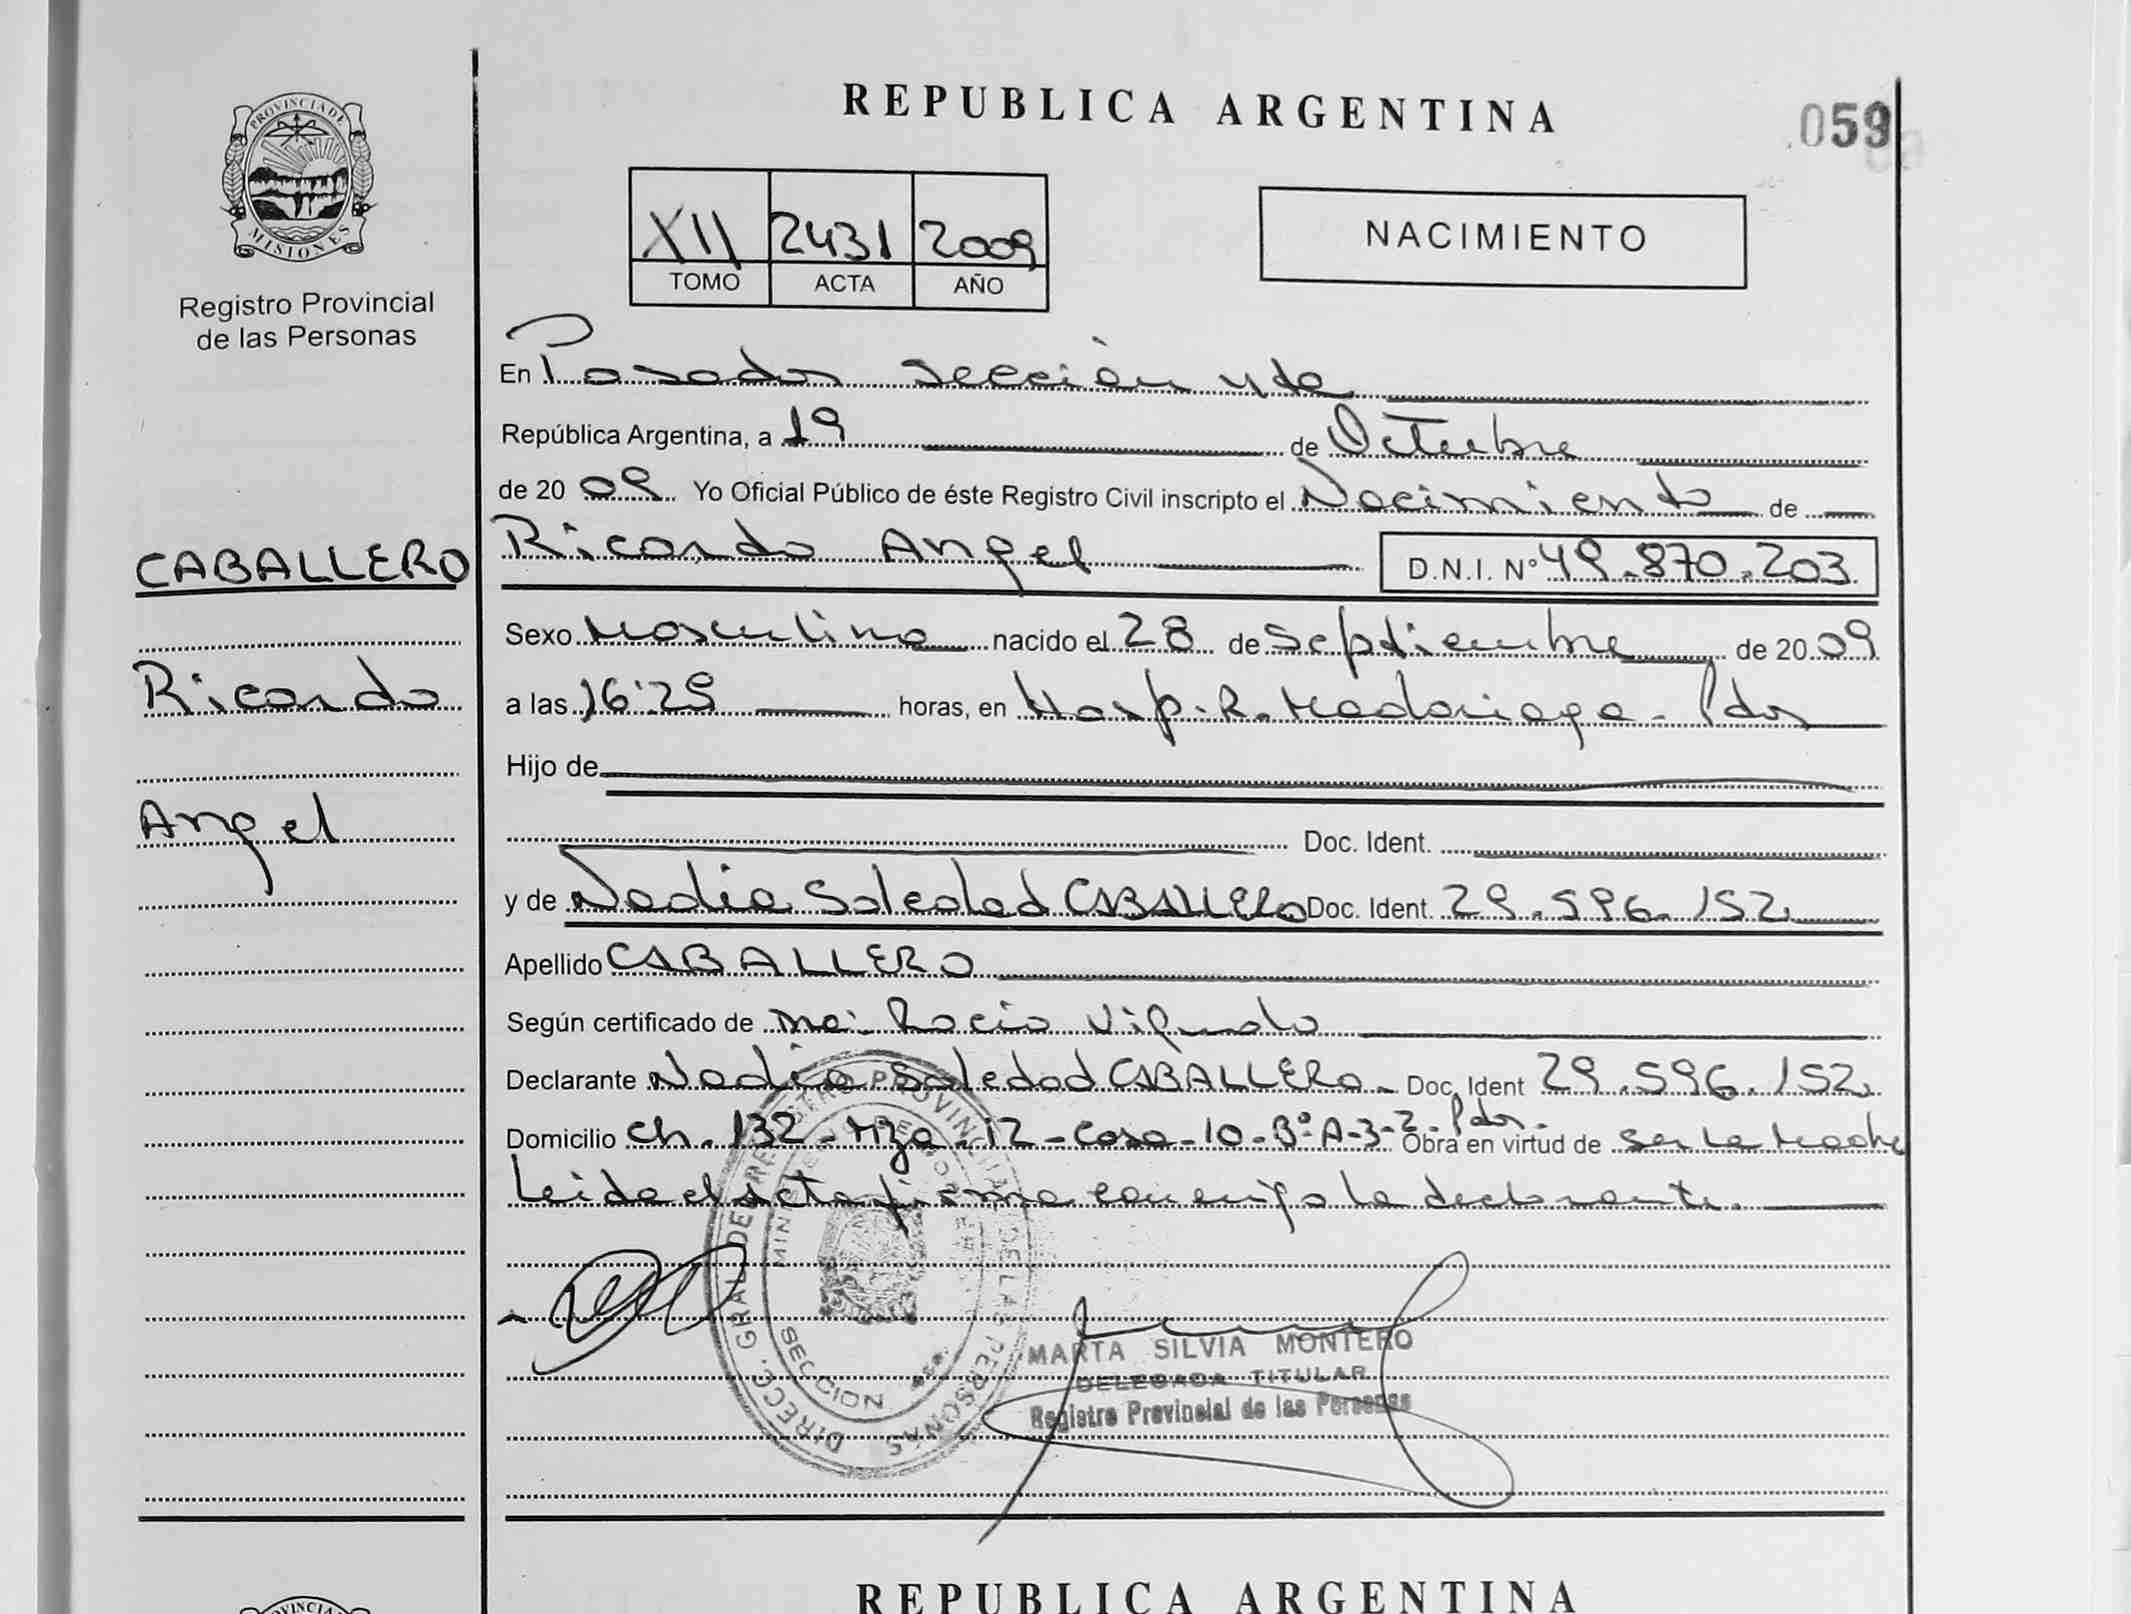 REPUBLICA ARGENTINA
059
PROVINCIA DE
MISIONES
Registro Provincial
de las Personas
XII 2431 2009
TOMO ACTA AÑO
NACIMIENTO
En Posadas sección 4ta
República Argentina, a 19 de Octubre
de 20 09 Yo Oficial Público de éste Registro Civil inscripto el Nacimiento de
CABALLERO
Ricardo
Angel
Ricardo Angel D.N.I. Nº 49.870.203
Sexo Masculino nacido el 28 de Septiembre de 20 09
a las 16:25 horas, en Hosp. R. Madariaga - Pdas
Hijo de
Doc. Ident.
y de Nadia Soledad CABALLERO Doc. Ident. 29.596.152
Apellido CABALLERO
Según certificado de Ma. Rocío
Declarante Nadia Soledad CABALLERO Doc. Ident 29.596.152
Domicilio Ch. 132 - Mza - 12 - Casa - 10 - Bº A-3-2. Pdas. Obra en virtud de Ser la Madre
Leida el acta firma conmigo la declarante.
DIRECC. GRAL. DEL REGISTRO PROVINCIAL DE LAS PERSONAS
SECCION
MARTA SILVIA MONTERO
DELEGADA TITULAR
Registro Provincial de las Personas
REPUBLICA ARGENTINA